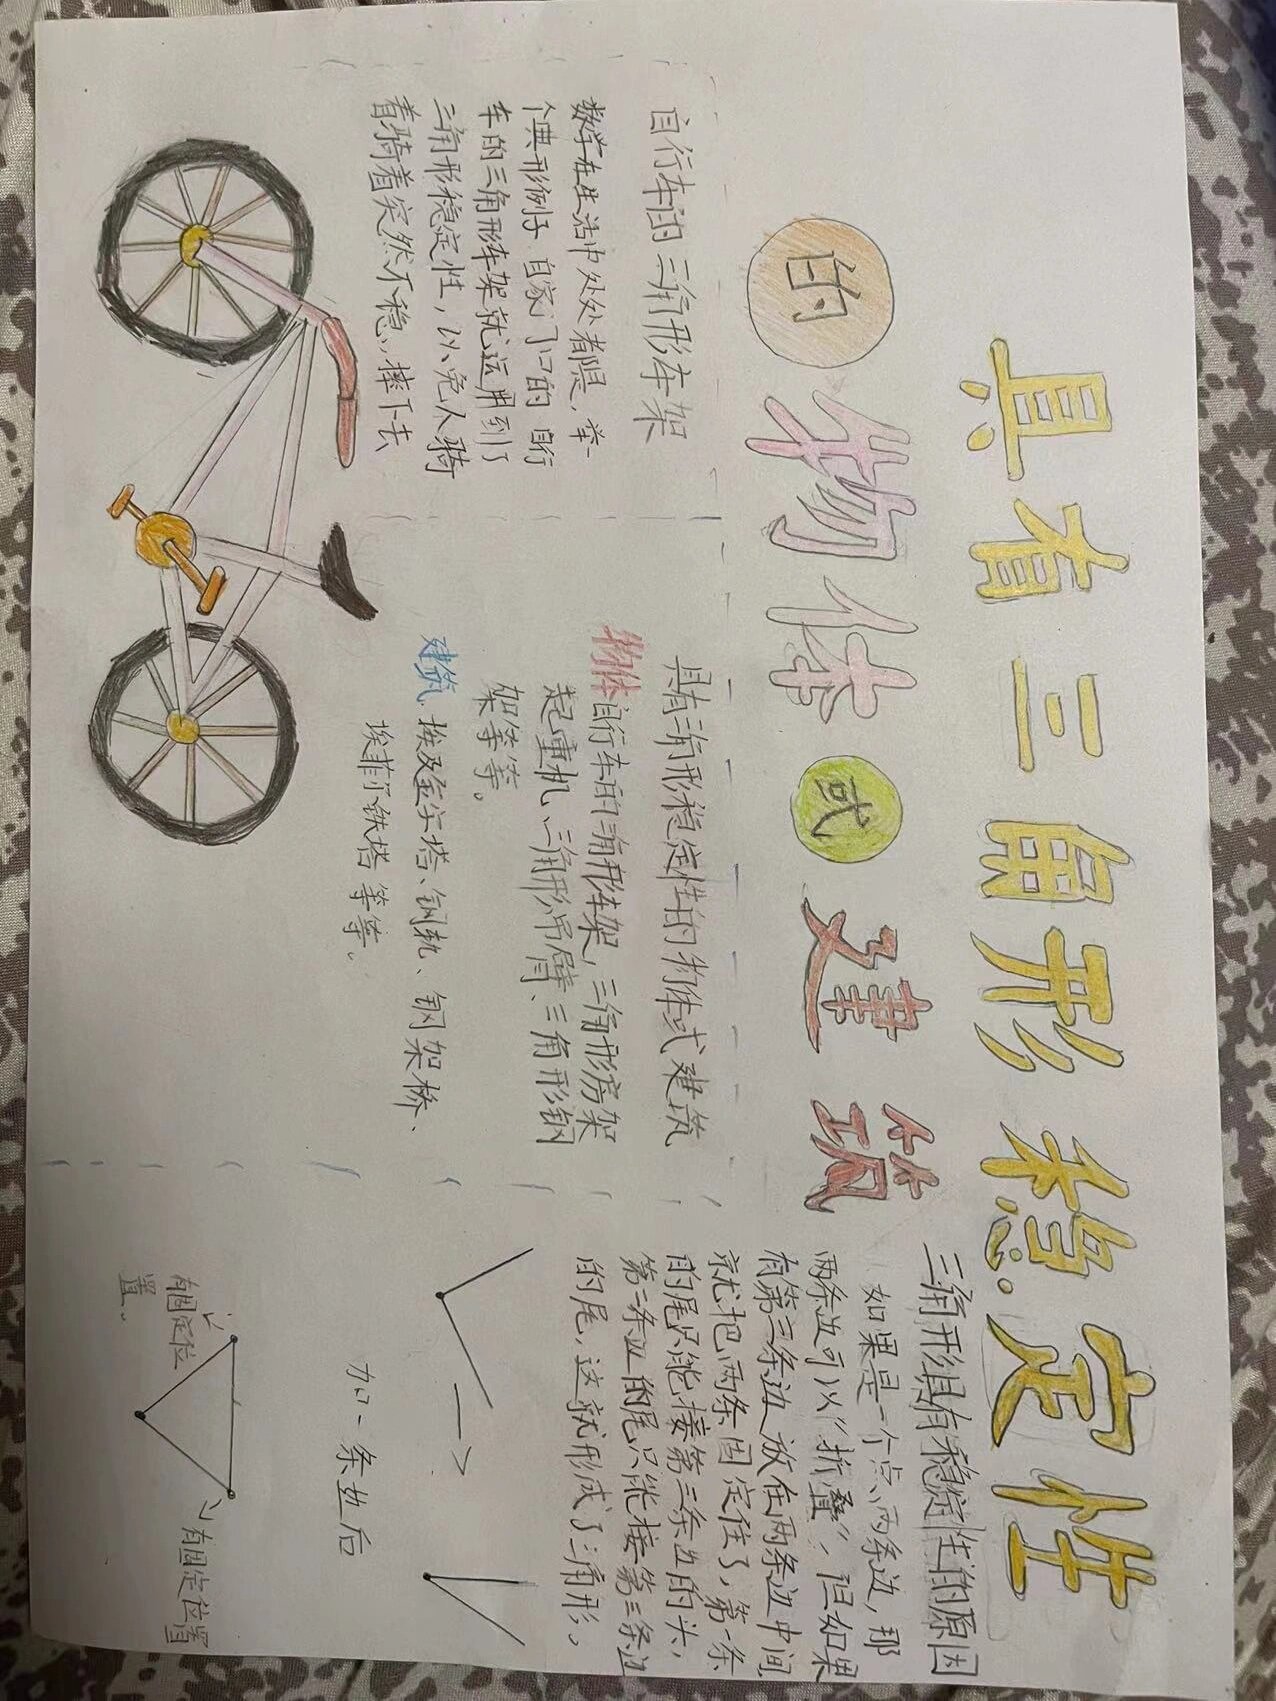 具有三角形稳定性
的物体或建筑
自行车的三角形车架
数学在生活中处处都是，举
个典形例子，自家门口的自行
车的三角形车架就运用到了
三角形稳定性，以免人骑
着骑着突然不稳，摔下去
具有三角形稳定性的物体或建筑
物体自行车的三角形车架，三角形房架
起重机、三角形吊臂、三角形钢
架等等。
建筑，埃及金字塔、钢轨、钢架桥、
埃菲尔铁塔等等。
三角形具有稳定性的原因
如果是一个点，两条边，那
两条边可以“折叠”，但如果
有第三条边放在两条边中间
就把两条固定住了，第一条
的尾只能接第三条边的头，
第二条边的尾只能接第三条边
的尾，这就形成了三角形。
加一条边后
有固定位
置。
有固定位置